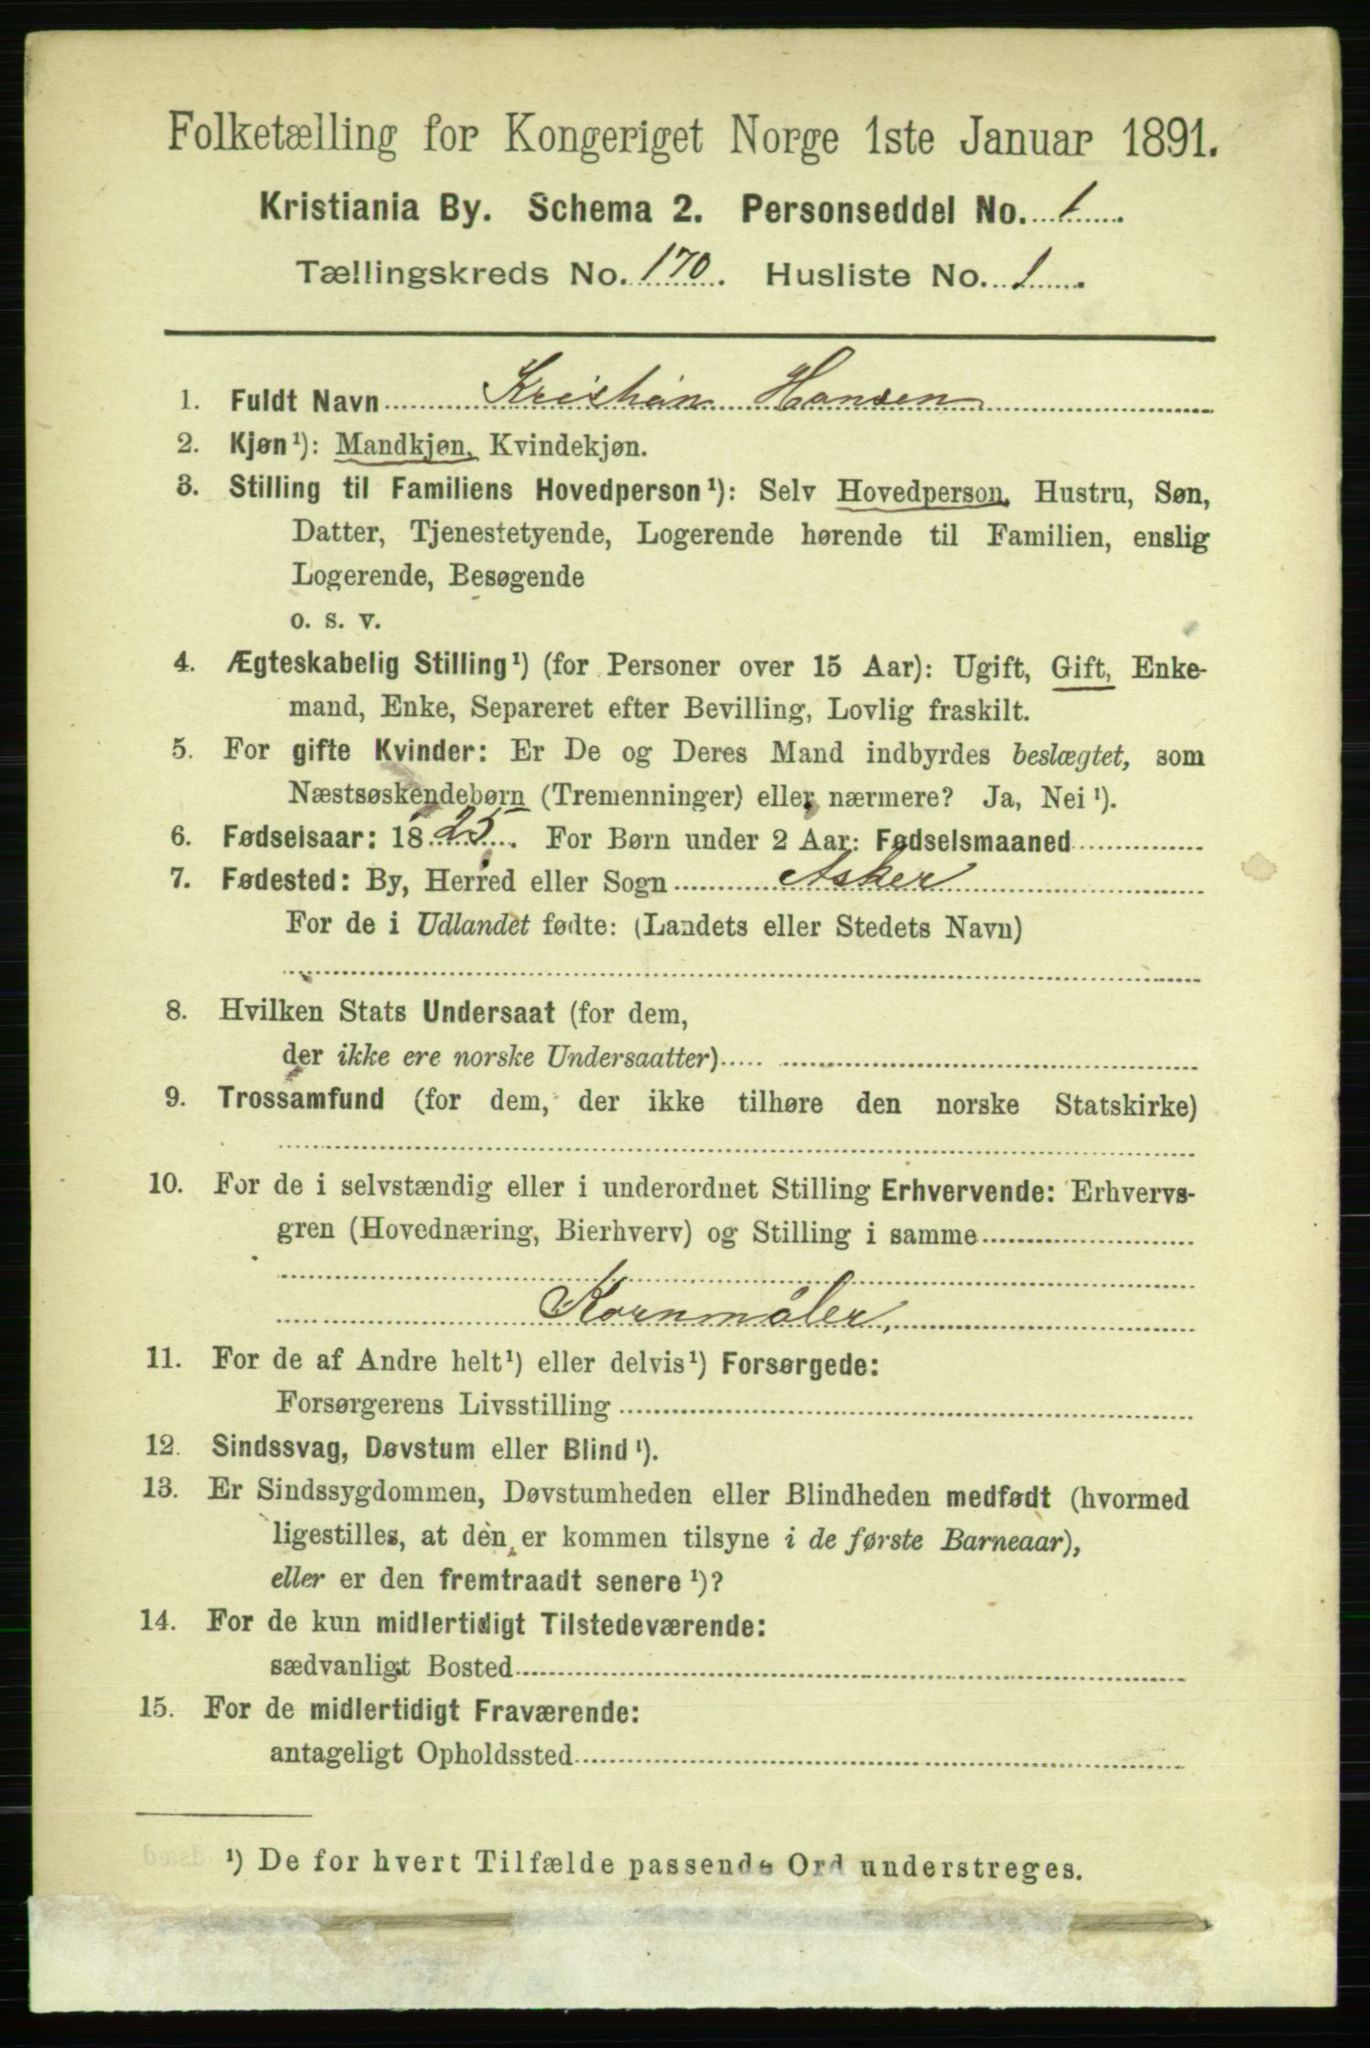 Folketælling for Kongeriget Norge 1ste Januar 1891.
Kristiania By. Schema 2. Personseddel No. 1
Tællingskreds No. 170. Husliste No. 1.
1. Fuldt Navn Kristian Hansen
2. Kjøn¹): Mandkjøn, Kvindekjøn.
3. Stilling til Familiens Hovedperson¹): Selv Hovedperson, Hustru, Søn,
Datter, Tjenestetyende, Logerende hørende til Familien, enslig
Logerende, Besøgende
o. s. v.
4. Ægteskabelig Stilling¹) (for Personer over 15 Aar): Ugift, Gift, Enke-
mand, Enke, Separeret efter Bevilling, Lovlig fraskilt.
5. For gifte Kvinder: Er De og Deres Mand indbyrdes beslægtet, som
Næstsøskendebørn (Tremenninger) eller nærmere? Ja, Nei¹).
6. Fødselsaar: 1825. For Børn under 2 Aar: Fødselsmaaned
7. Fødested: By, Herred eller Sogn Asker
For de i Udlandet fødte: (Landets eller Stedets Navn)
8. Hvilken Stats Undersaat (for dem,
der ikke ere norske Undersaatter)
9. Trossamfund (for dem, der ikke tilhøre den norske Statskirke)
10. For de i selvstændig eller i underordnet Stilling Erhvervende: Erhvervs-
gren (Hovednæring, Bierhverv) og Stilling i samme
Kornmåler,
11. For de af Andre helt¹) eller delvis¹) Forsørgede:
Forsørgerens Livsstilling
12. Sindssvag, Døvstum eller Blind¹).
13. Er Sindssygdommen, Døvstumheden eller Blindheden medfødt (hvormed
ligestilles, at den er kommen tilsyne i de første Barneaar),
eller er den fremtraadt senere¹)?
14. For de kun midlertidigt Tilstedeværende:
sædvanligt Bosted
15. For de midlertidigt Fraværende:
antageligt Opholdssted
¹) De for hvert Tilfælde passende Ord understreges.